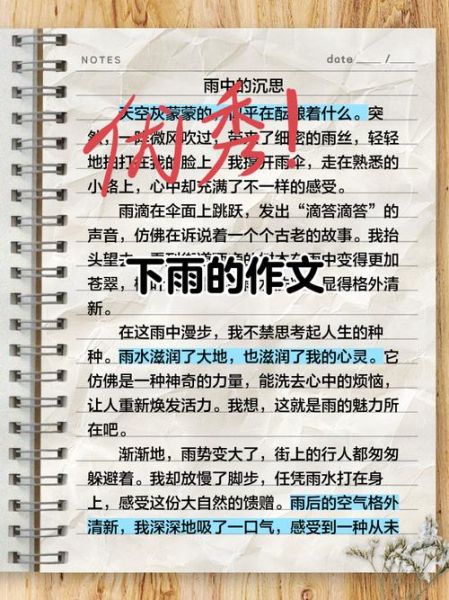 NOTES
date ____ /____
雨中的沉思
优秀!
天空灰蒙蒙的 乎在酝酿着什么。突
然，一阵微风吹过，带来了细密的雨丝，轻轻
地拍打在我的脸上。我撑开雨伞，走在熟悉的
小路上，心中却充满了不一样的感受。
雨滴在伞面上跳跃，发出“滴答滴答”的
声音，仿佛在诉说着一个个古老的故事。我抬
头望 雨中变得更加
下雨的作文
苍翠， 显得格外清
新。
在这雨中漫步，我不禁思考起人生的种
种。雨水滋润了大地，也滋润了我的心灵。它
仿佛是一种神奇的力量，能洗去心中的烦恼，
让人重新焕发活力。我想，这就是雨的魅力所
在吧。
渐渐地，雨势变大了，街上的行人都匆匆
躲避着。我却放慢了脚步，任凭雨水打在身
上，感受这份大自然的馈赠。雨后的空气格外
清新，我深深地吸了一口气，感受到一种从未